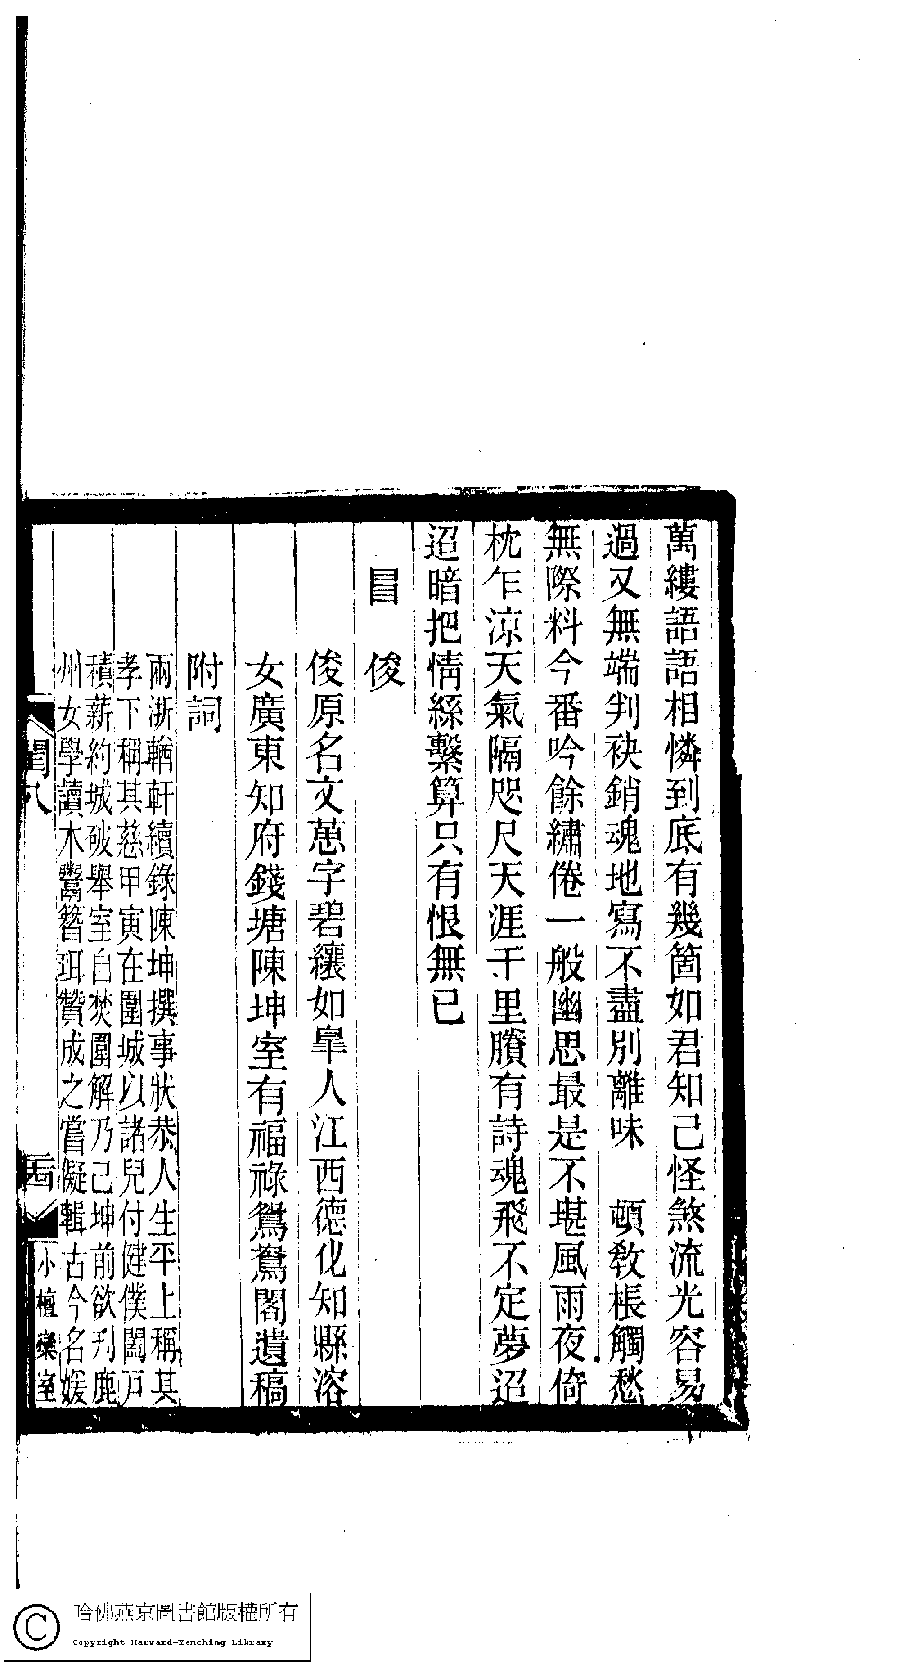 萬縷語語相憐到底有幾箇如君知己怪煞流光容易
過又無端判袂銷魂地寫不盡別離味　頓教棖觸愁
無際料今番吟餘繡倦一般幽思最是不堪風雨夜倚
枕乍涼天氣隔咫尺天涯千里賸有詩魂飛不定夢迢
迢暗把情絲繫算只有恨無已
俊
俊原名文蕙字碧纕如皐人江西德化知縣溶
女廣東知府錢塘陳坤室有福祿鴛鴦閣遺稿
附詞
兩浙輶軒續錄陳坤撰事狀恭人生平上稱其
孝下稱其慈甲寅在圍城以諸兒付健僕闔戸
積薪約城破舉室自焚圍解乃已坤前欲刋鹿
州女學讀木鸞簪珥贊成之嘗儗輯古今名媛
閨八
小檀欒室
哈佛燕京圖書館版權所有
Copyright Harvard-Yenching Library